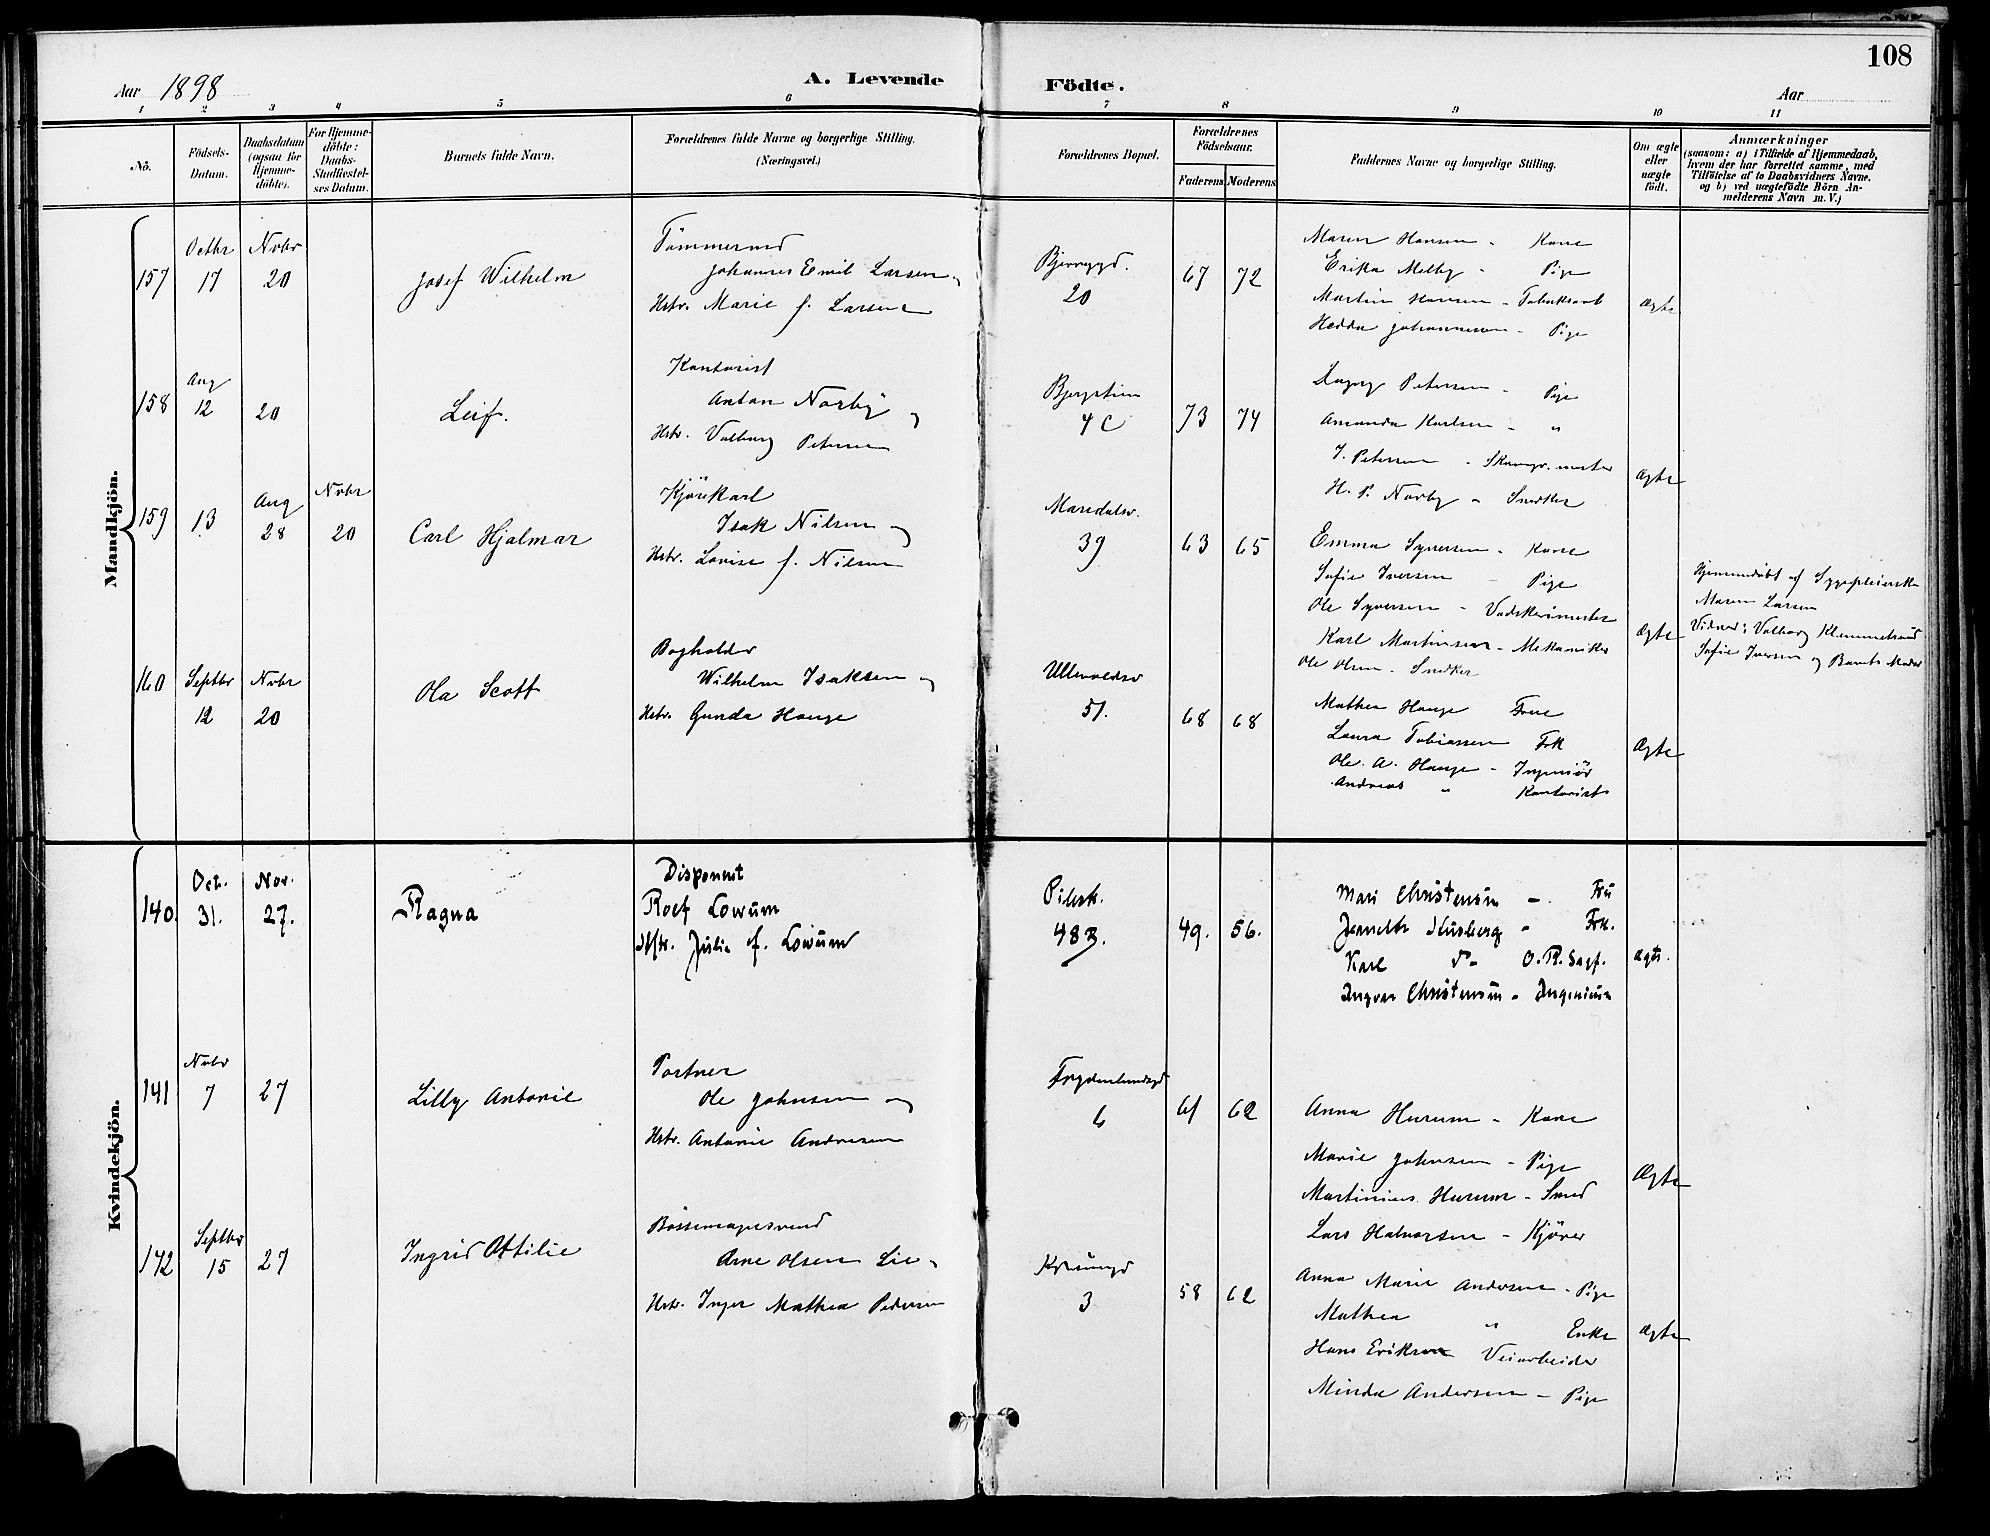 108
Aar 1898
A. Levende Födte.
Aar
1 2 3 4 5 6 7 8 9 10 11
No.
Födsels-Datum.
Daabsdatum (ogsaa for Hjemme-döbte).
For Hjemme-döbte: Daabs-Stadfæstel-ses Datum.
Barnets fulde Navn.
Forældrenes fulde Navne og borgerlige Stilling. (Næringsvei.)
Forældrenes Bopæl.
Forældrenes Födselsaar.
Faderens Moderens
Faddernes Navne og borgerlige Stilling.
Om ægte eller uægte födt.
Anmærkninger
(saasom: a) i Tilfælde af Hjemmedaab,
hvem der har forrettet samme, med
Tilföielse af to Daabsvidners Navne.
og b) ved uægtefödte Börn An-
melderens Navn m. V.)
Mandkjön.
157
Octbr 17
Novbr 20
Josef Wilhelm
Tömmermd
Johannes Emil Larsen
Hstr. Marie f. Larsen
Bjerregd.
20
67 72
Maren Hansen - Kone
Erika Melby - Pige
Martin Hansen - Tobaksarb
Hedda Johannesen - Pige
Ægte
158
Aug 12
20
Leif.
Kontorist
Anton Norby og
Hstr. Valborg Petersen
Bjergstien
4 C
73 74
Dagny Petersen - Pige
Amanda Karlsen - "
J. Petersen - mester
H. P. Norby - Snedker
Ægte
159
13
Aug 28
Novbr 20
Carl Hjalmar
Kjörekarl
Isak Nilsen og
Hstr. Lovise f. Nilsen
Maridalsv.
39
63 65
Emma Syversen - Kone
Sofie Iversen - Pige
Ole Syversen - Vadskerimester
Karl Martinsen - Mekaniker
Ole Olsen - Snedker
Ægte
Hjemmedöbt af Sygepleierske
Maren Larsen
Vidner: Valborg Klemmetsrud
Sofie Iversen og Barnets Moder
160
Septbr 12
Novbr 20
Ola Scott
Bogholder
Wilhelm Isaksen og
Hstr. Gunda Hauge
Ullevoldsv
51.
68 68
Mathea Hauge Frue
Laura Tobiassen Frk
Ole A. Hauge - Ingeniör
Andreas " Kontorist
Ægte
Kvindekjön.
140.
Oct. 31.
Nov. 27.
Ragna
Disponent
Rolf Lowum
Hstr. Julie f. Lowum
Pilestr.
48 B.
49. 56.
Mari Christensen - Fru
Husberg - Frk.
Karl Do - O.R. Sagf.
Ingvar Christensen - Ingeniør
Ægte.
141
Novbr 7
27
Lilly Antonie
Portner
Ole Johnsen og
Hstr. Antonie Andresen
Frydenlundsgd
6
61 62
Anna Hurum - Kone
Marie Johnsen - Pige
Martinius Hurum - Smed
Lars Halvorsen - Kjörer
Ægte
142
Septbr 15
27
Ingrid Ottilie
Bössemagersvend
Arne Olsen Lie
Hstr. Inger Mathea Pedersen
3
58 62
Anna Marie Andersen - Pige
Mathea " Enke
Hans Eriksen Veiarbeider
Minda Andersen - Pige
Ægte